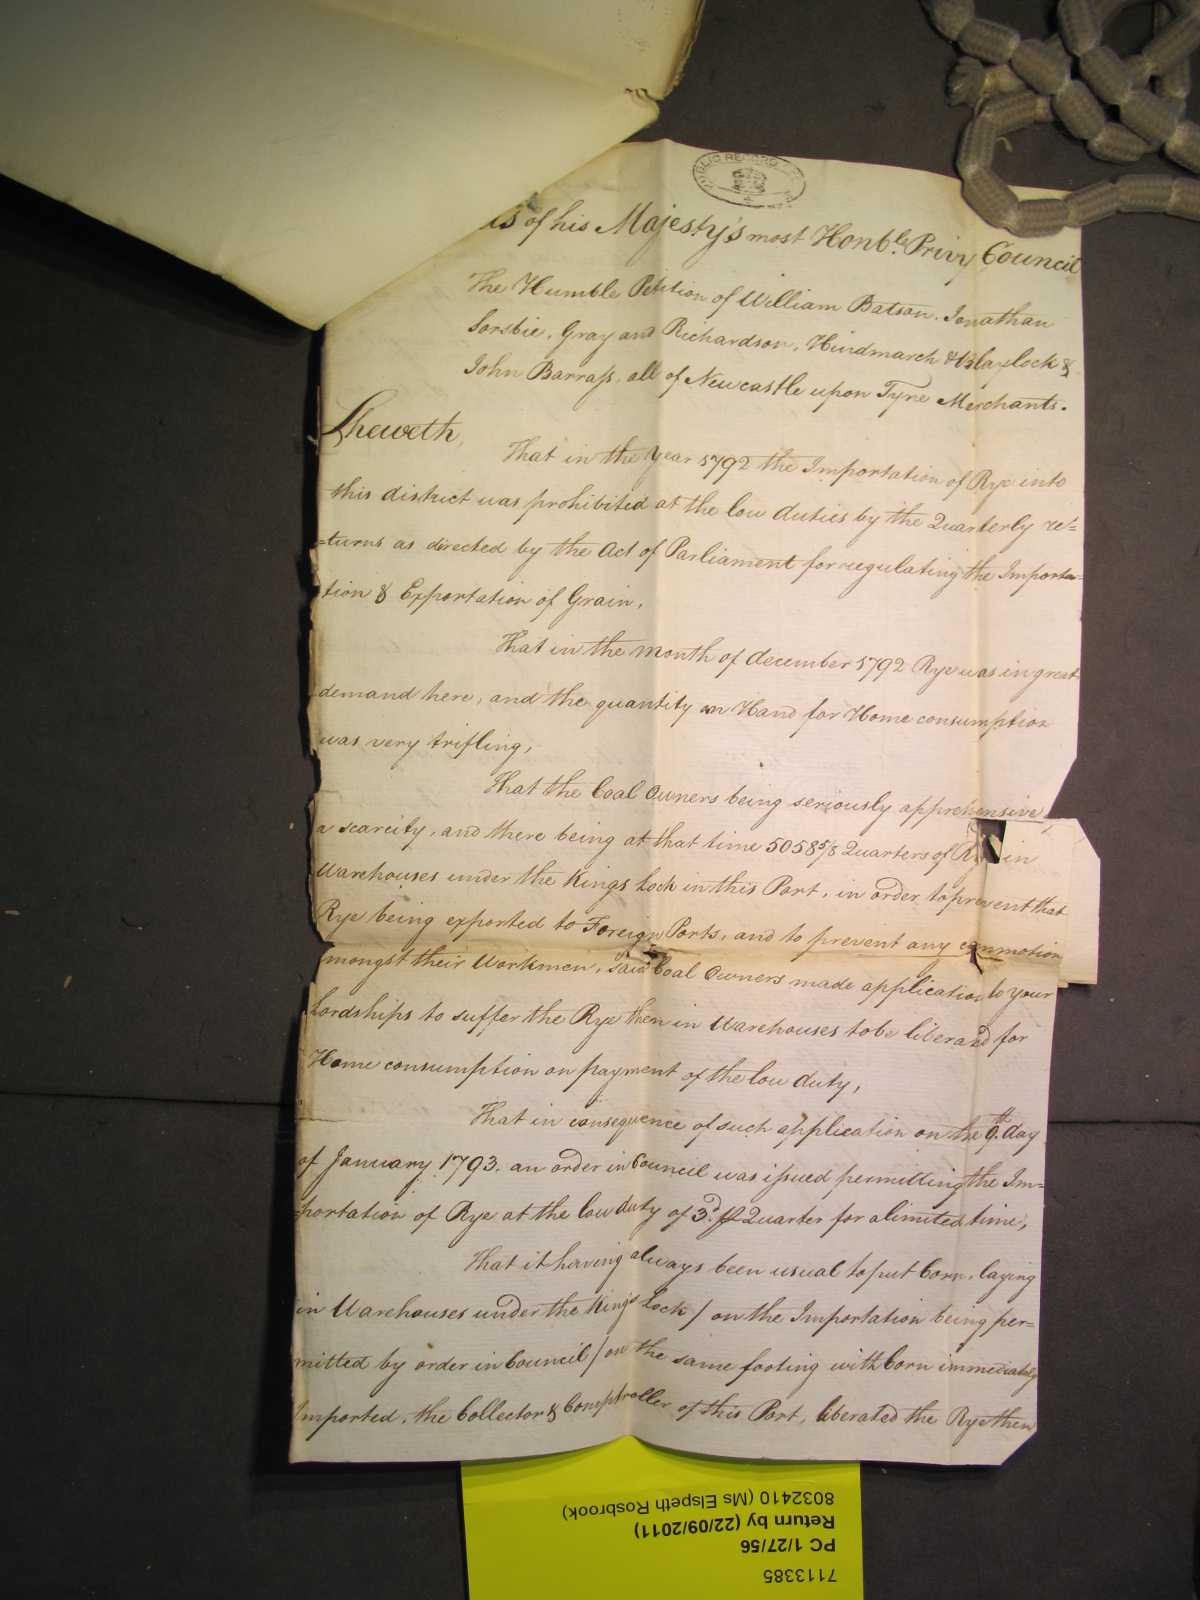 PUBLIC RECORD
of his Majesty's most Honble. Privy Council
The Humble Petition of William Batson, Jonathan
Sorsbie, Gray and Richardson, Hindmarch & Blaylock &
John Barrass, all of Newcastle upon Tyne Merchants.
Sheweth,
That in the Year 1792 the Importation of Rye into
this district was prohibited at the low duties by the Quarterly re=
=turns as directed by the Act of Parliament for regulating the Importa=
tion & Exportation of Grain,
That in the Month of december 1792 Rye was in great
demand here, and the quantity on Hand for Home consumption
was very trifling,
That the Coal Owners being seriously apprehensive
a scarcity, and there being at that time 5058 5/8 Quarters of in
Warehouses under the Kings Lock in this Port, in order to prevent that
Rye being exported to Foreign Ports, and to prevent any commotion
mongst their Workmen, said Coal Owners made application to your
Lordships to suffer the Rye then in Warehouses to be liberated for
Home consumption on payment of the low duty,
That in consequence of such application on the 9th. day
of January 1793. an order in Council was issued permitting the Im=
=portation of Rye at the low duty of 3d. pr Quarter for a limited time,
That it having always been usual to put Corn, laying
in Warehouses under the Kings Lock / on the Importation being per=
mitted by order in Council / on the same footing with Corn immediately
Imported, the Collector & Comptroller of this Port, liberated the Rye then
7113385
PC 1/27/56
Return by (22/09/2011)
8032410 (Ms Elspeth Rosbrook)